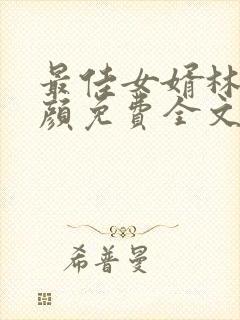 最佳女婿林
颜免费全文
希普曼